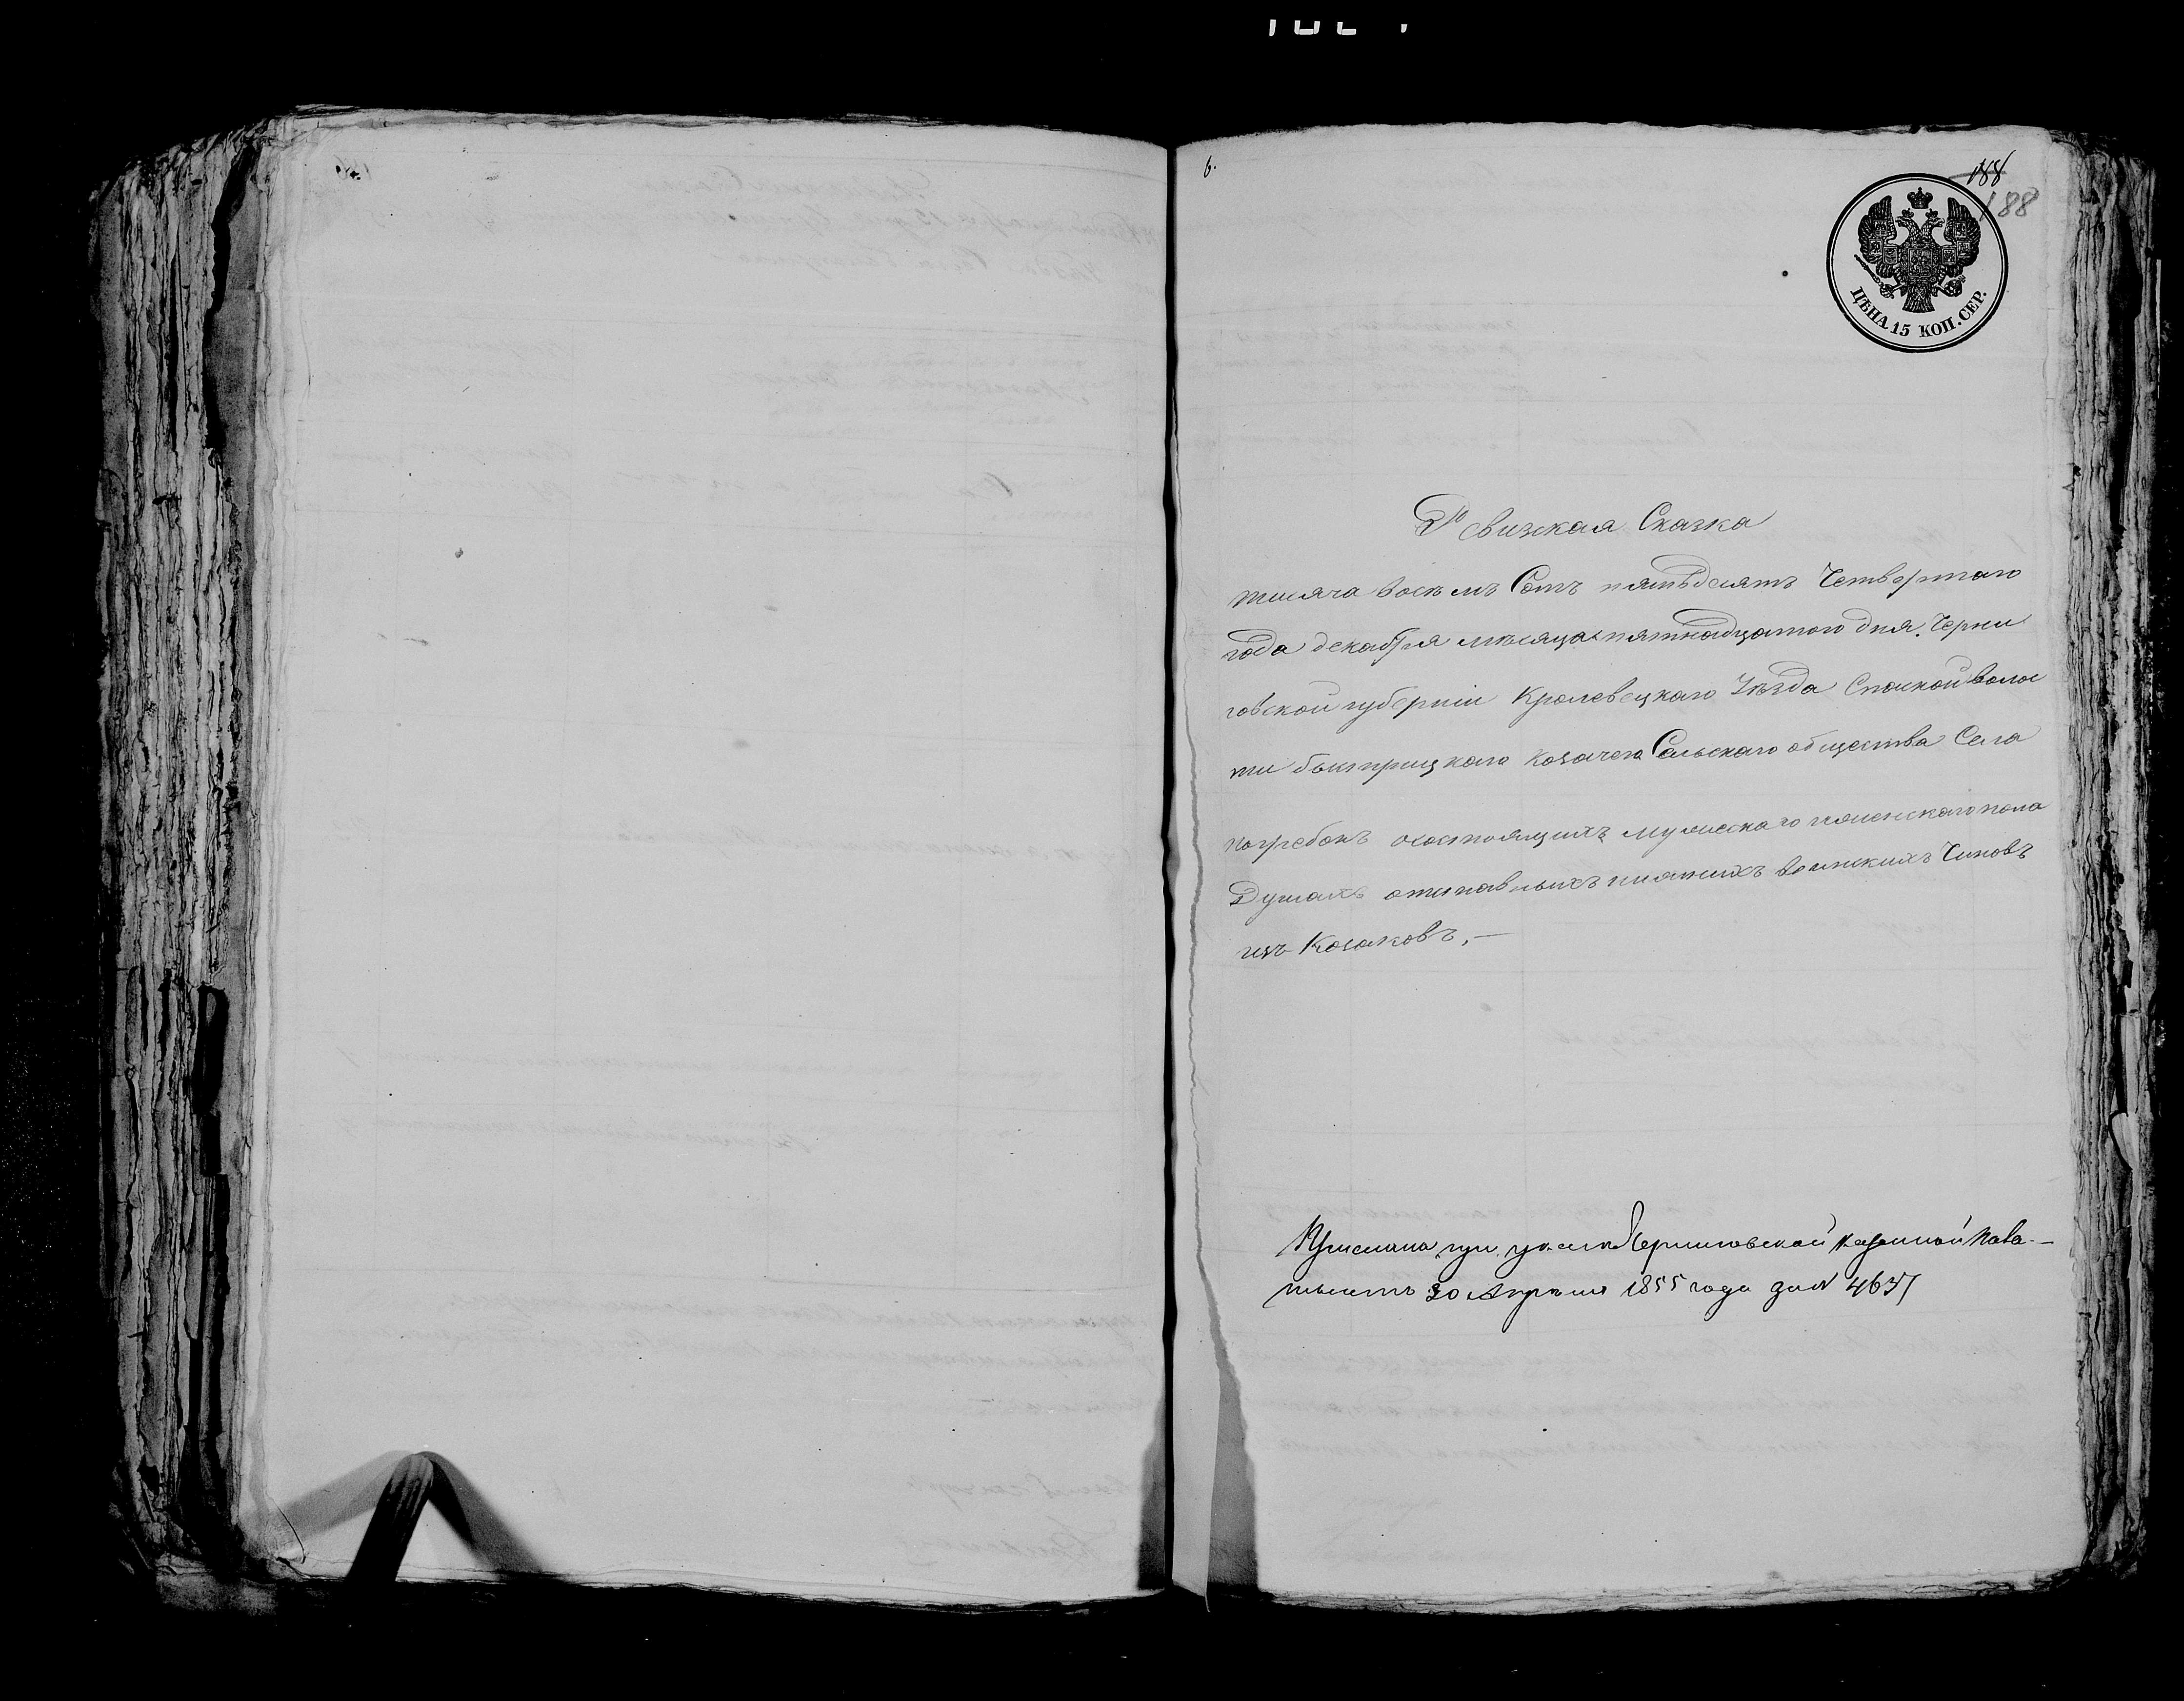 6.
188
188
ЦѢНА 15 КОП. СЕР.
Ревизская Сказка
тысяча восемъ Сотъ пятьдесятъ Четвертаго
года декабря мѣсяца пятнадцатого дня. Черни
говской губерніи Кролевецкаго Уѣзда Спаской волос
ти быстрицкаго козачего Сельскаго общества Села
погребокъ осостоящихъ мужескаго иженскаго пола
Душахъ отставныхъ нижнихъ воинскихъ Чиновъ
изъ Козаковъ. —
Прислана при указѣ Черниговской Казенной Пала-
тыотъ 30 Апрѣля 1855 года за N 4637